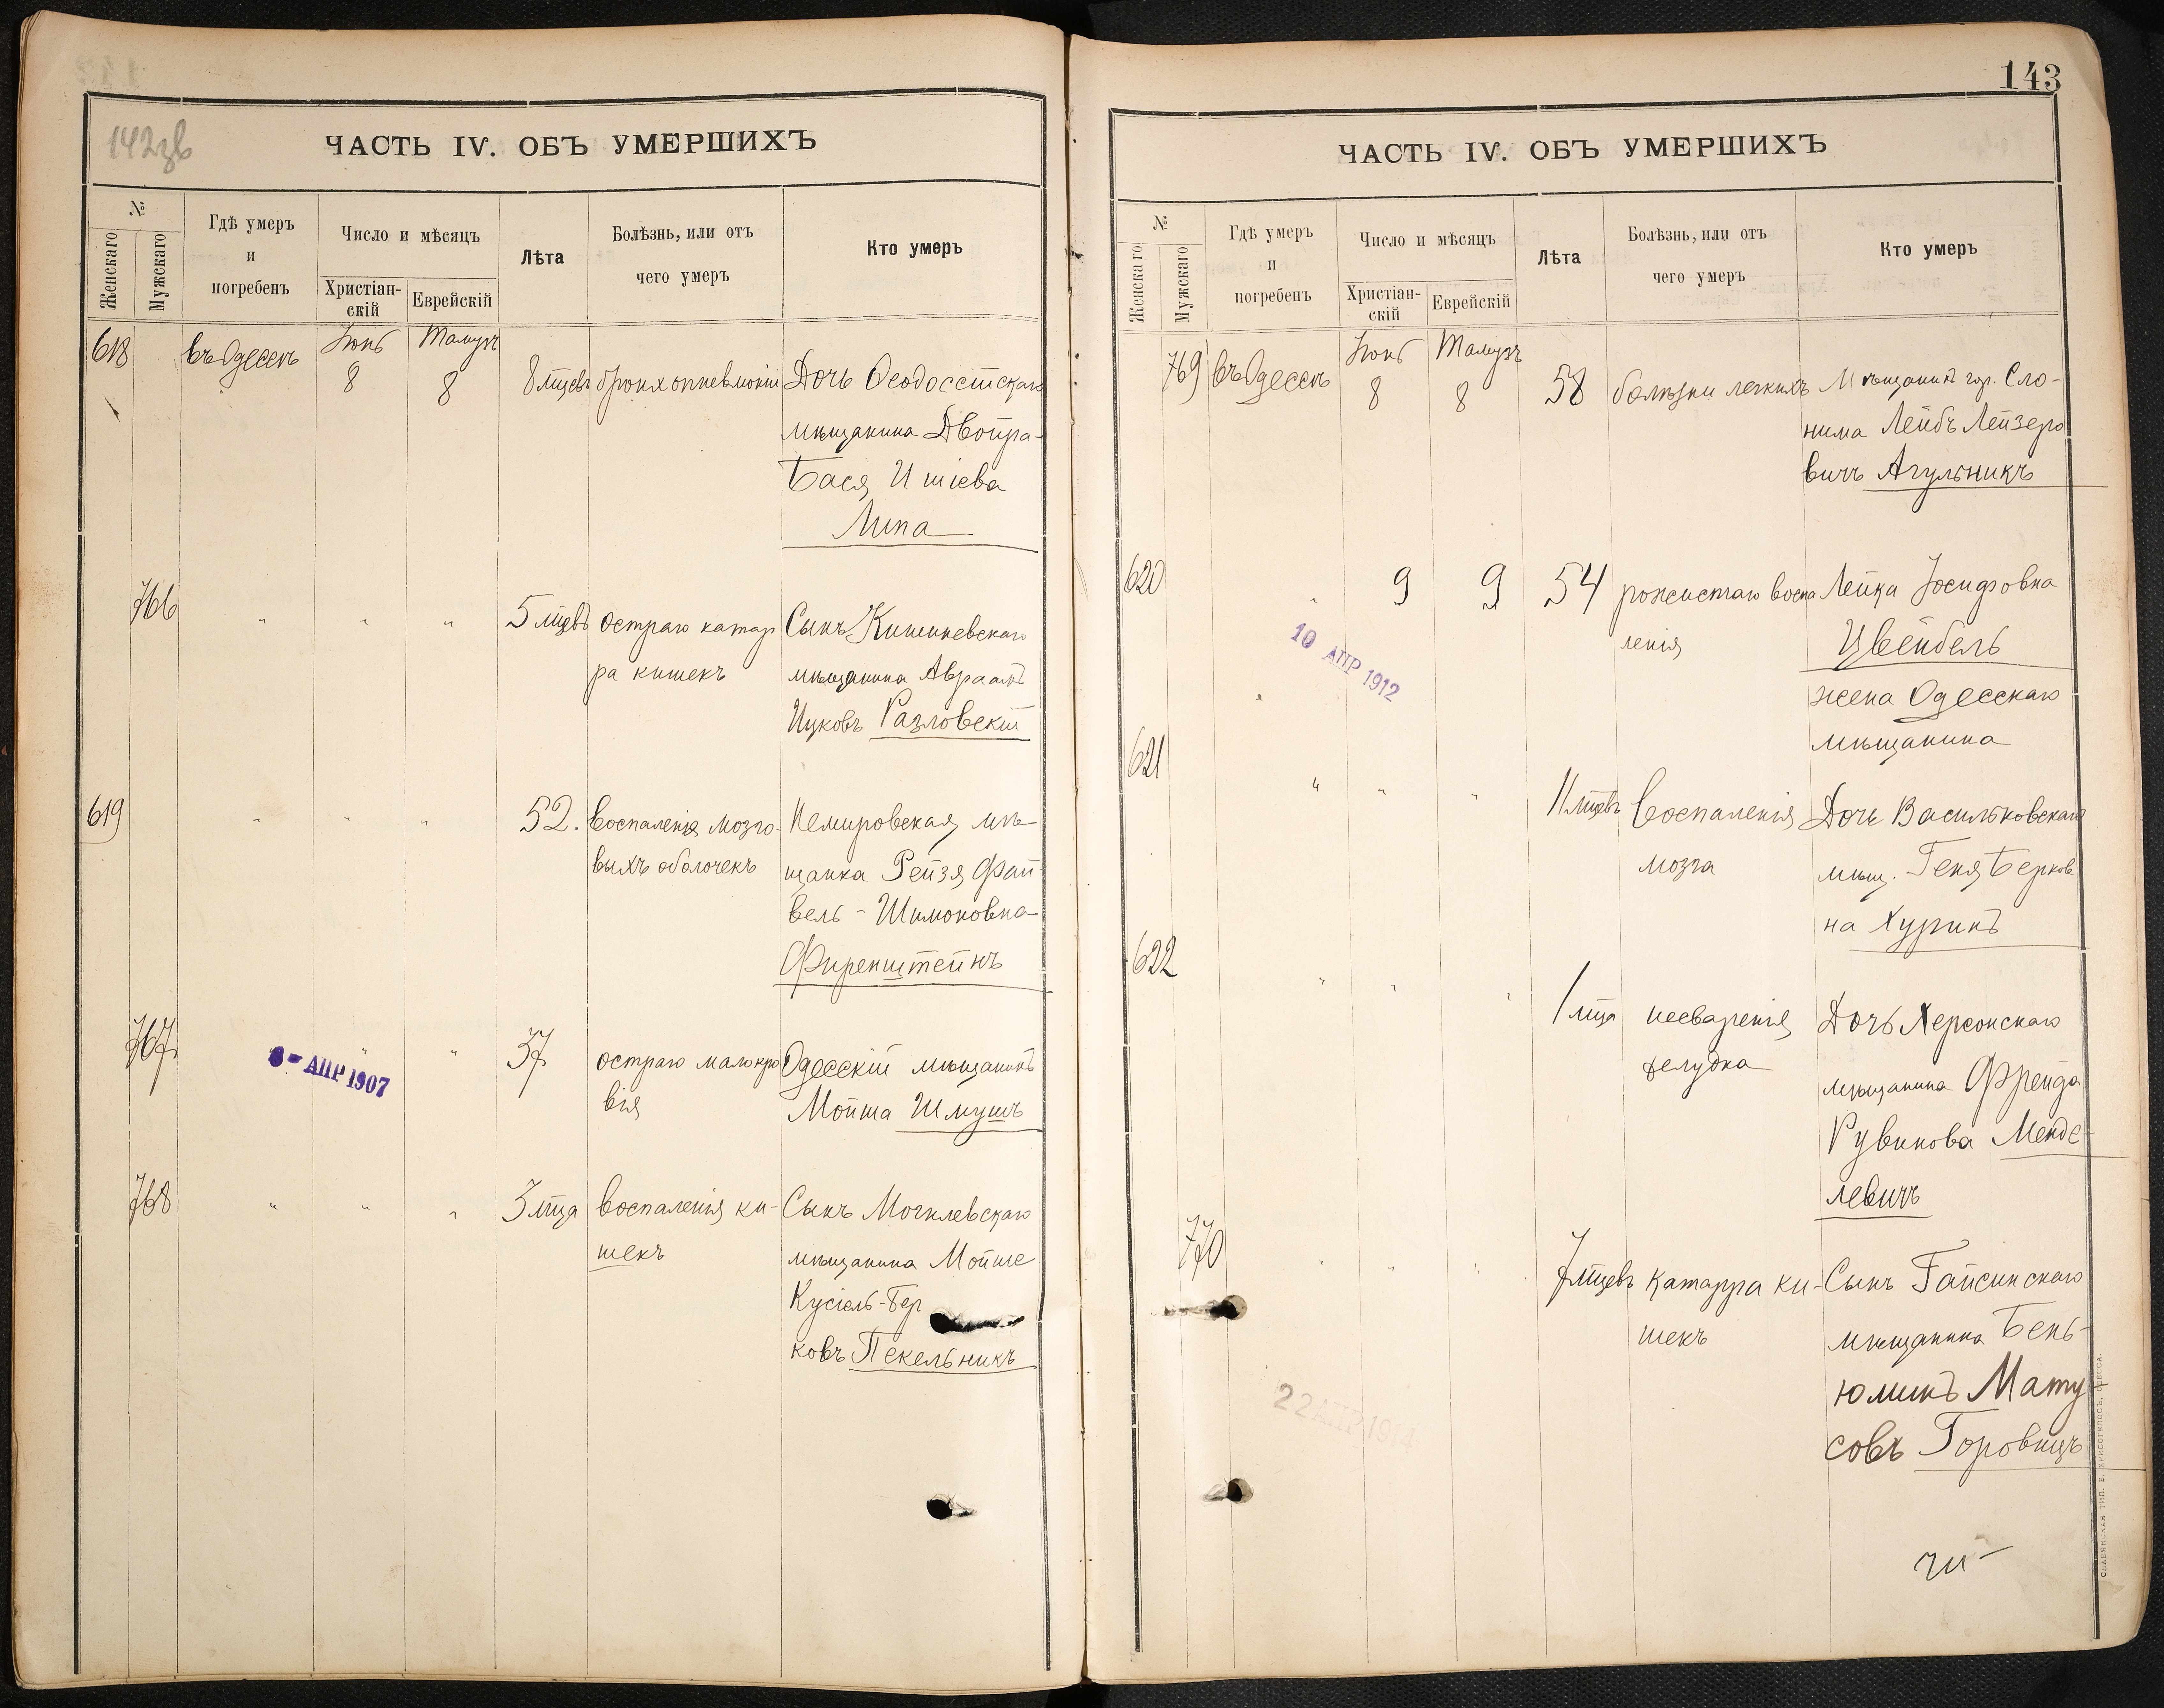 142зв
ЧАСТЬ IV. ОБЪ УМЕРШИХЪ
№
Женскаго
Мужскаго
Гдѣ умеръ
и
погребенъ
Число и мѣсяцъ
Христіан-
скій
Еврейскій
Лѣта
Болѣзнь, или отъ
чего умеръ
Кто умеръ
618 въ Одессѣ Іюнь Тамузъ
8 8 8 мѣцевъ бронхопневмоніи Дочь Ѳеодоссійскаго
мѣщанина Двойра-
Бася Ишіева
Липа
766 " " " 5 мѣцевъ остраго катар Сынъ Кишиневскаго
ра кишекъ мѣщанина Авраамъ
Ицковъ Разловскій
619 " " " 52. воспаленія мозго- Немировская мѣ
выхъ оболочекъ щанка Рейзя Фай
вель-Шимоновна
Фиренштейнъ
767 " " 37 остраго малокро Одесскій мѣщанинъ
вія Мойша Шмушъ
8 - АПР 1907
768 " " " 3 мѣца воспаленія ки- Сынъ Могилевскаго
шекъ мѣщанина Мойше
Кусіель-Бер
ковъ Пекельникъ
143
ЧАСТЬ IV. ОБЪ УМЕРШИХЪ
№
Женскаго
Мужскаго
Гдѣ умеръ
и
погребенъ
Число и мѣсяцъ
Христіан-
скій
Еврейскій
Лѣта
Болѣзнь, или отъ
чего умеръ
Кто умеръ
769 въ Одессѣ Іюнь Тамузъ
8 8 58 болѣзни легкихъ Мѣщанинъ гор. Сло-
нима Лейбъ Лейзеро
вичъ Агульникъ
620 " 9 9 54 рожистаго воспа Лейка Іосифовна
ленія Цвейбель
10 АПР 1912
жена Одесскаго
мѣщанина
621 " " " 11 мѣцевъ воспаленія Дочь Васильковскаго
мозга мѣщ. Геня Берков
на Хуринъ
622 " " " 1 мѣца несваренія Дочь Херсонскаго
желудка мѣщанина Фрейда
Рувинова Менде-
левичъ
770 " " " 7 мѣцевъ катарра ки- Сынъ Гайсинскаго
шекъ мѣщанина Бень-
юминъ Мату
совъ Горовицъ
22 АПР 1914
СЛАВЯНСКАЯ ТИП. Е. ХРИСОГЕЛОСЪ, ОДЕССА.